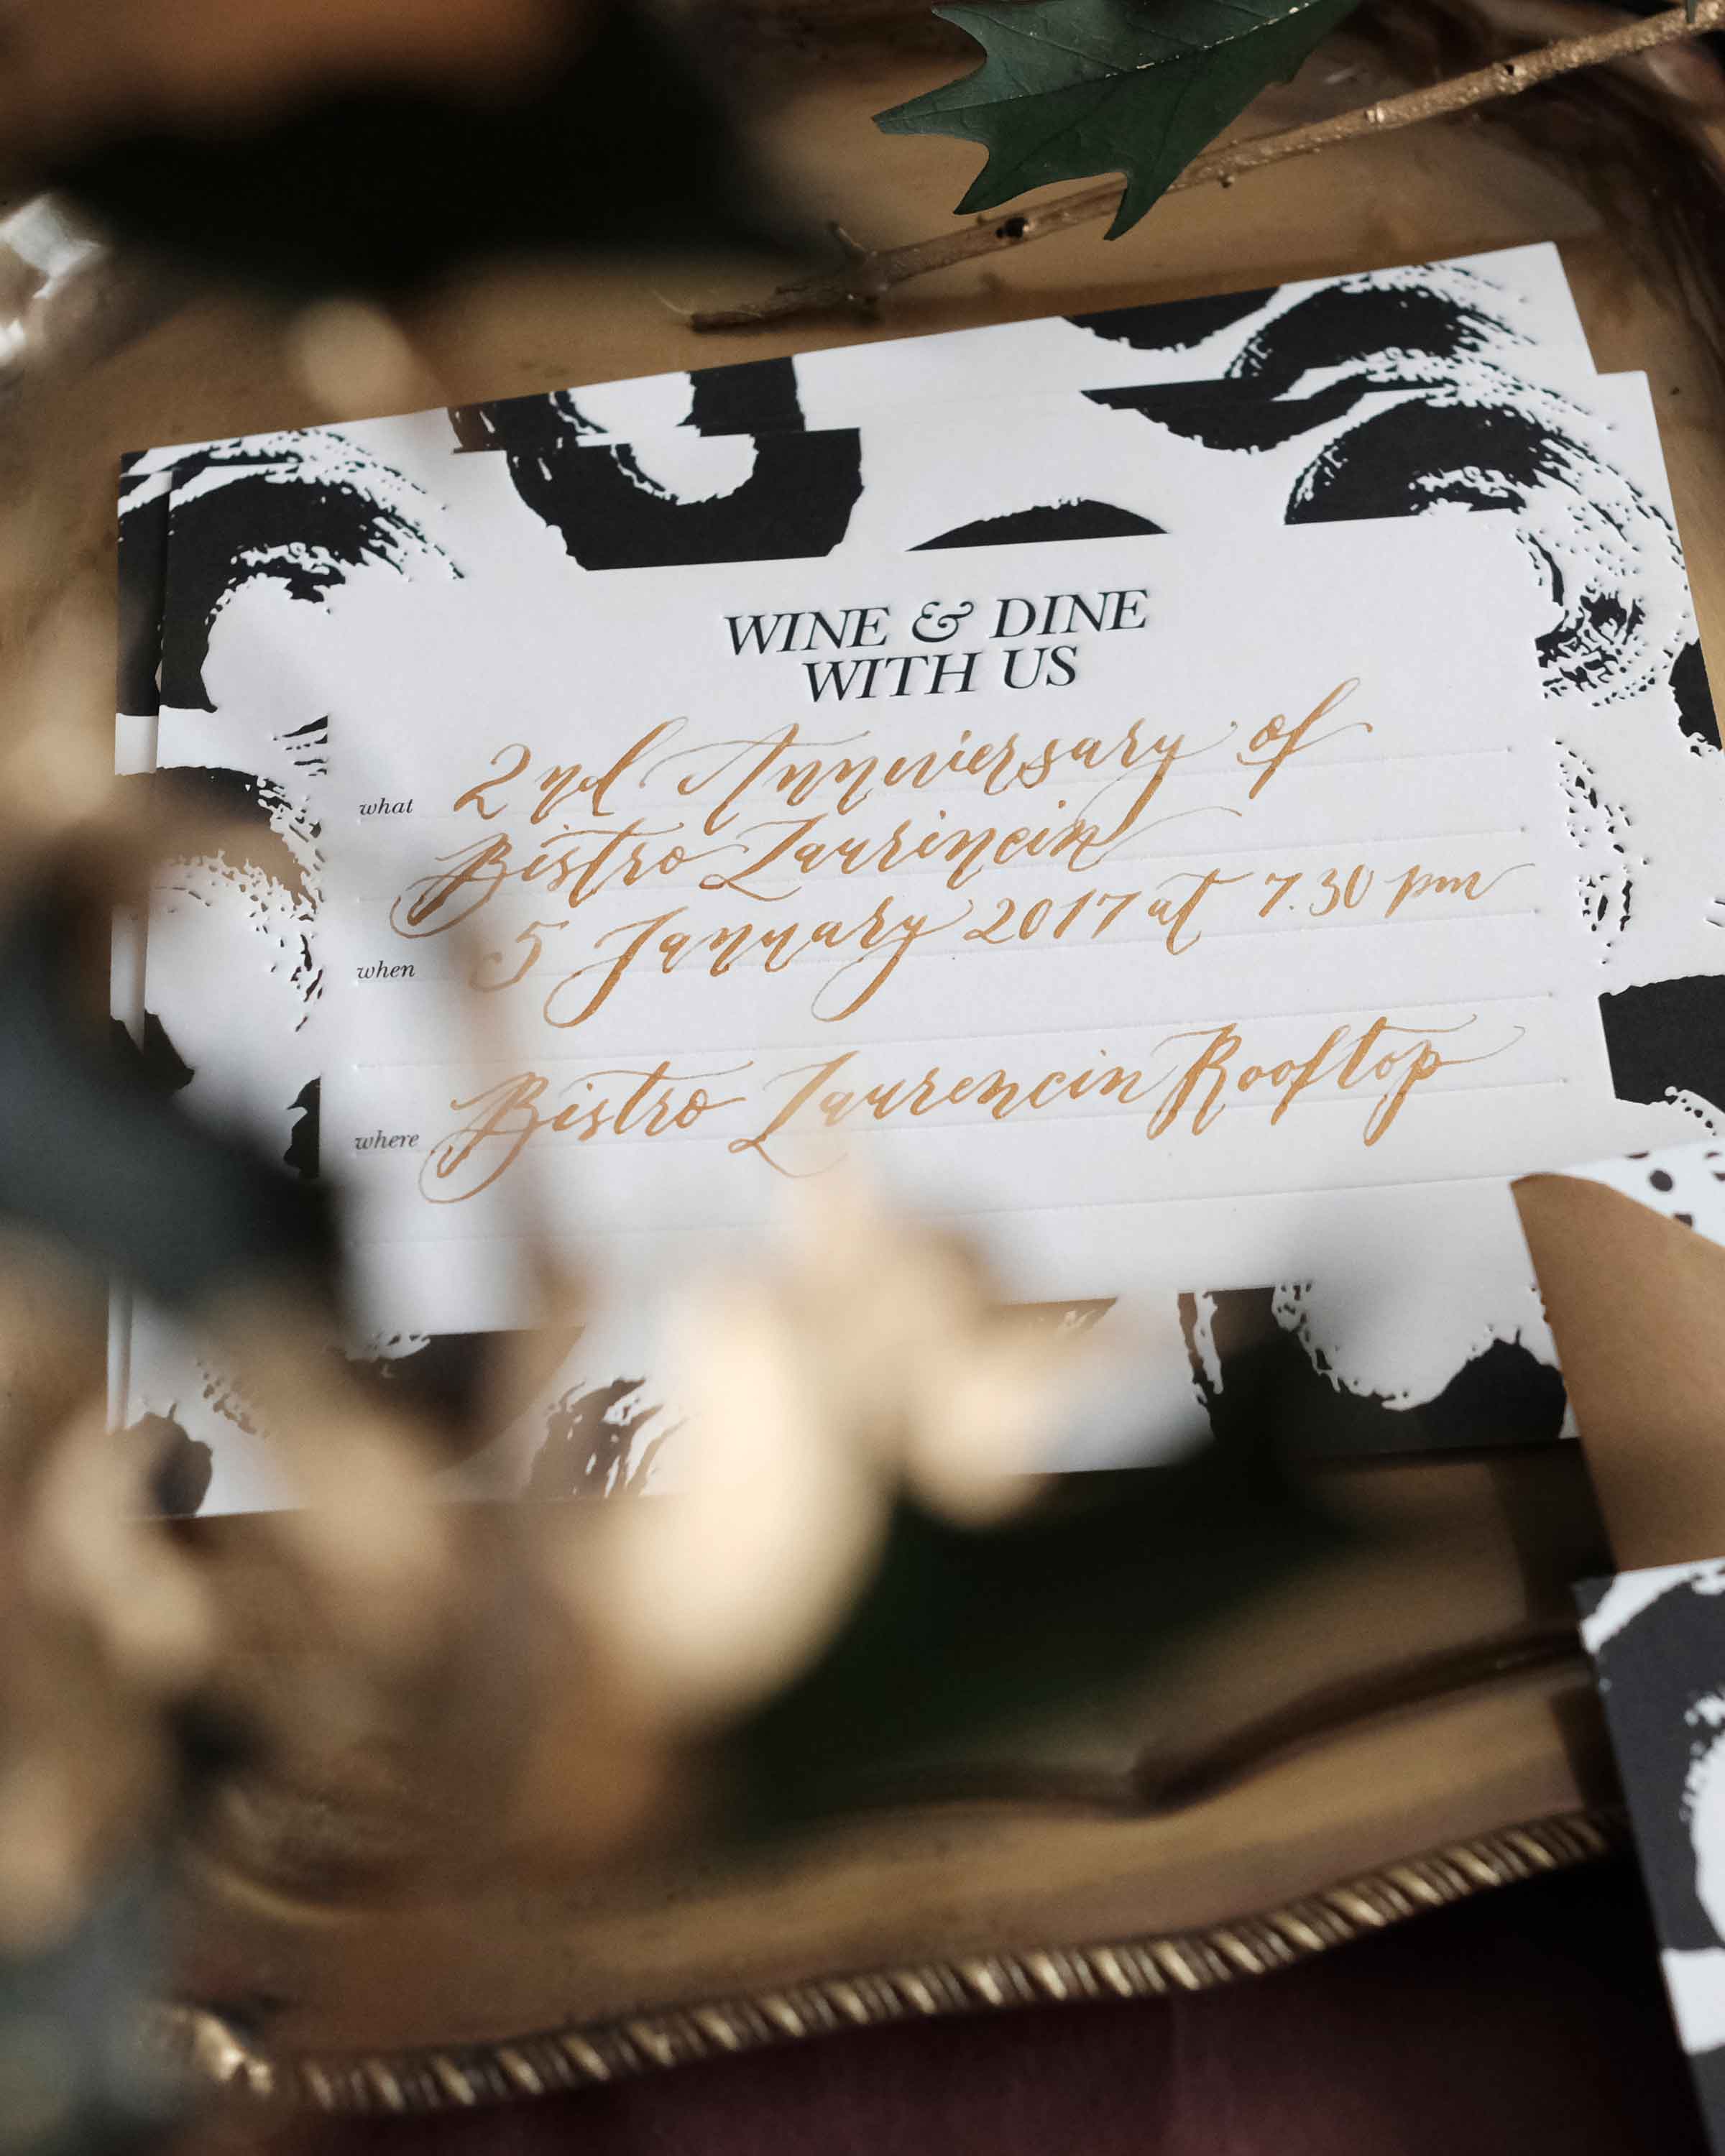 WINE & DINE
WITH US
what 2nd Anniversary of
Bistro Laurincin
when 5 January 2017 at 7.30 pm
where Bistro Laurencin Rooftop